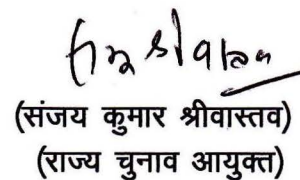 (संजय कुमार श्रीवास्तव)
(राज्य चुनाव आयुक्त)